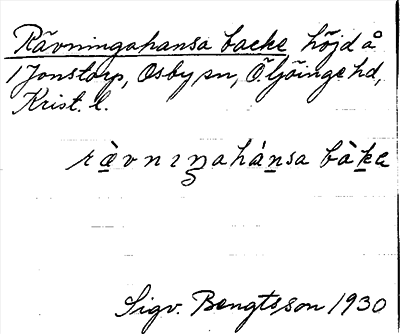 Rävningahansa backe höjd å
1 Jonstorp, Osby sn, Ö. Göinge hd,
Krist. l.
ræ̀vnıŋahánsa bàka
Sigv. Bengtsson 1930